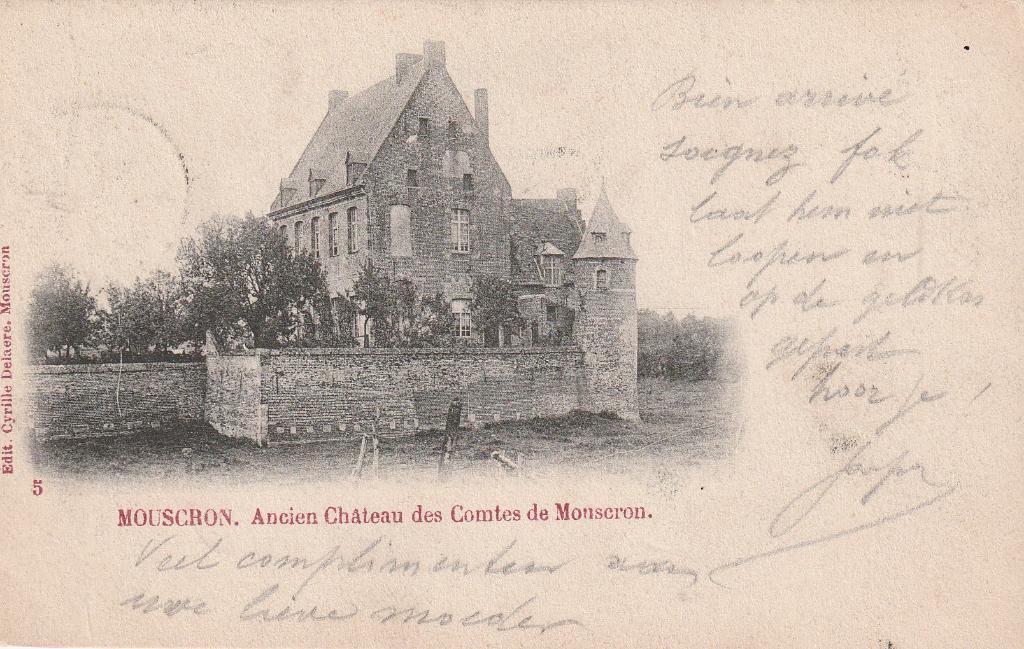 Bien arrivé
Soignez fok
laat hem niet
loopen en
op de
gepast
hoor je !
Edit. Cyrille Delaere. Mouscron
5
MOUSCRON. Ancien Château des Comtes de Mouscron.
Veel complimenten aan
uwe lieve moeder